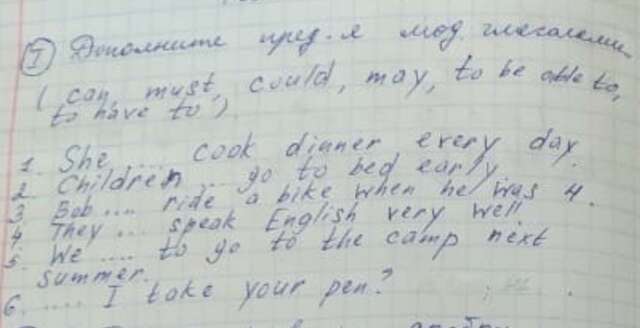 I Дополните пред-я мод. глаголами
( can, must, could, may, to be able to,
to have to )
1. She .... cook dinner every day.
2. Children ... go to bed early.
3. Bob .... ride a bike when he was 4.
4. They ... speak English very well.
5. We .... to go to the camp next
summer.
6. .... I take your pen?